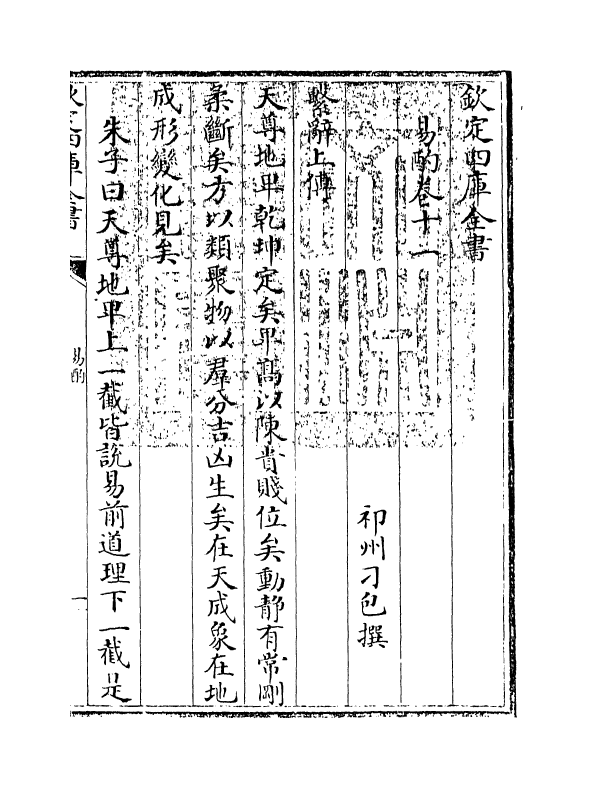 欽定四庫全書
易酌卷十一
祁州刁包撰
繫辭上傳
天尊地卑乾坤定矣卑高以陳貴賤位矣動靜有常剛
柔斷矣方以類聚物以羣分吉凶生矣在天成象在地
成形變化見矣
朱子曰天尊地卑上一截皆說易前道理下一截是
欽定四庫全書
易酌
一